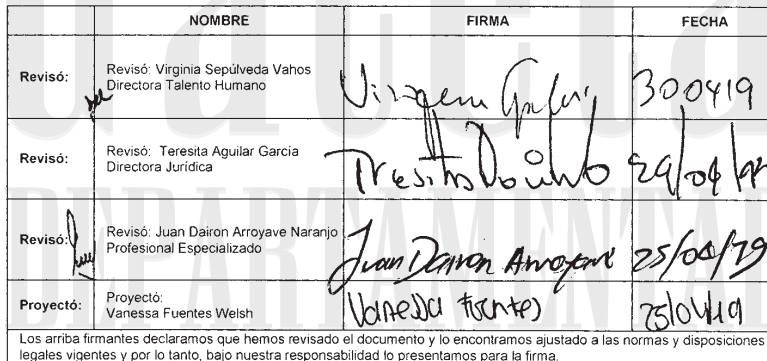 NOMBRE FIRMA FECHA
Revisó: Revisó: Virginia Sepúlveda Vahos
Directora Talento Humano
300419
Revisó: Revisó: Teresita Aguilar García
Directora Jurídica
Teresita
29/04/
Revisó: Revisó: Juan Dairon Arroyave Naranjo
Profesional Especializado
Juan Dairon Arroyave 25/04/19
Proyectó: Proyectó:
Vanessa Fuentes Welsh
Vanessa Fuentes 25/04/19
Los arriba firmantes declaramos que hemos revisado el documento y lo encontramos ajustado a las normas y disposiciones
legales vigentes y por lo tanto, bajo nuestra responsabilidad lo presentamos para la firma.
DEPARTAMENTAL